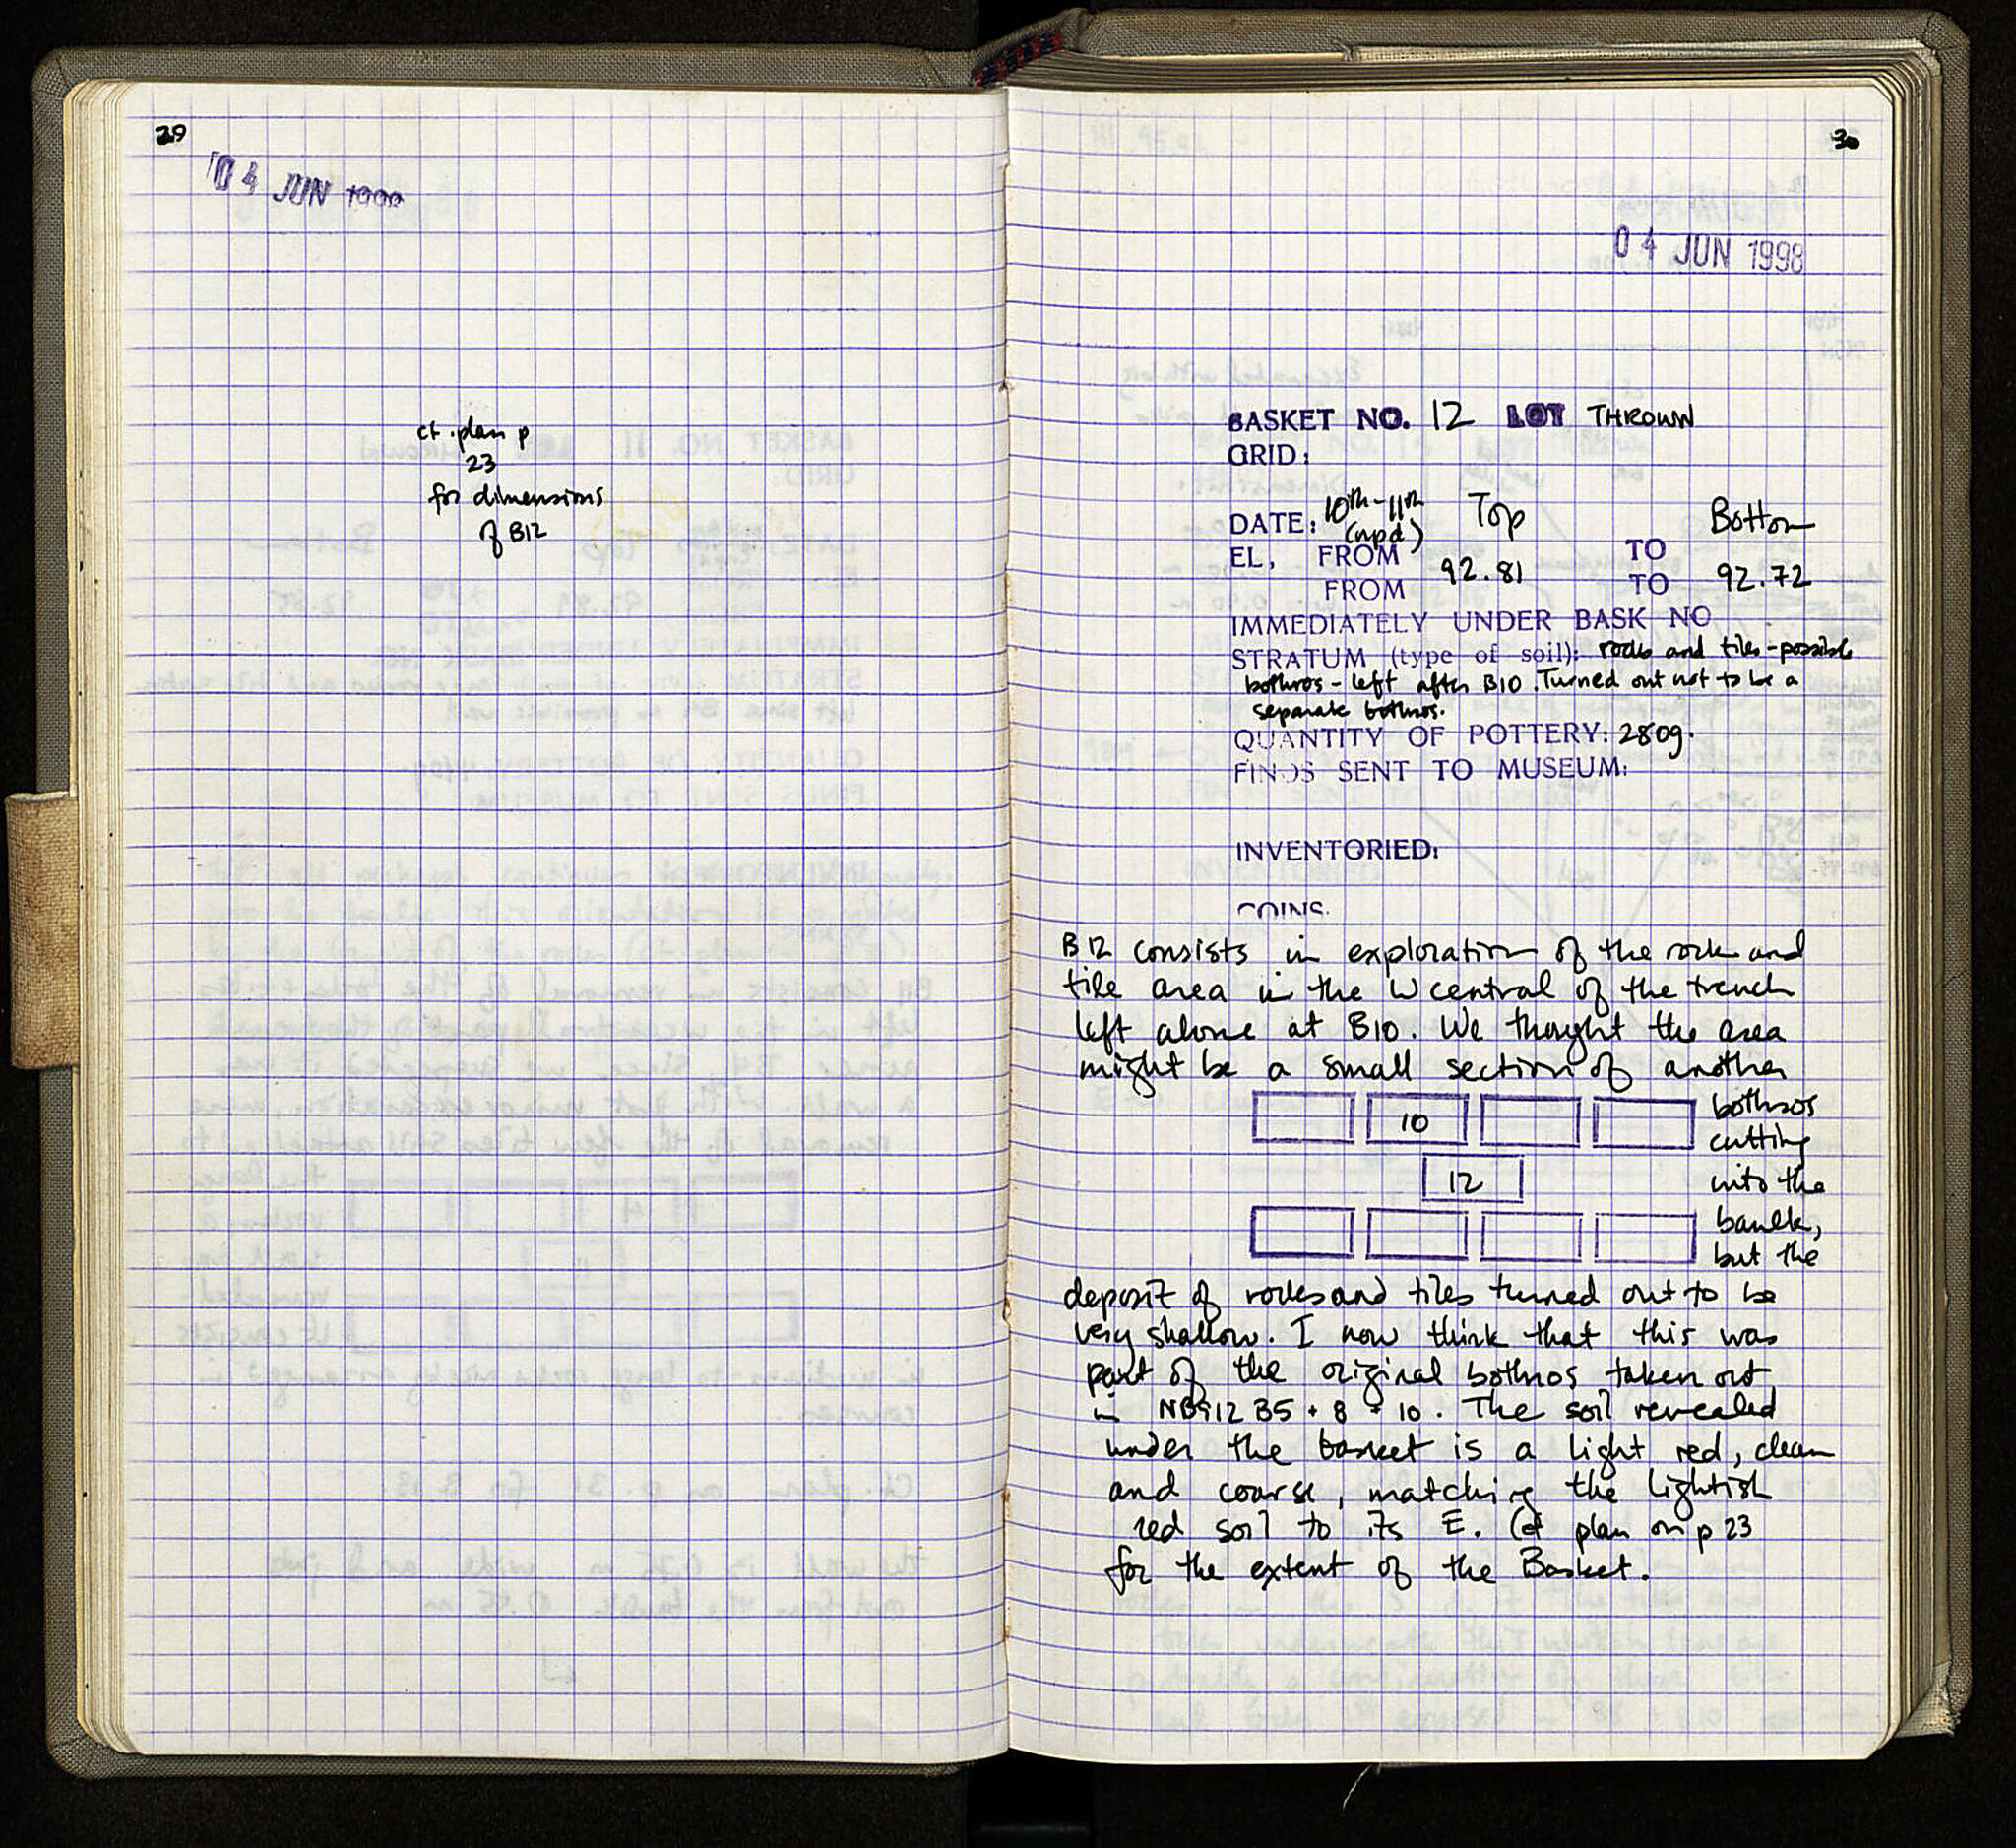 29
04 JUN
cf. plan p
23
for dimensions
of B12
30
04 JUN 1998
BASKET NO. 12 LOT THROWN
GRID:
DATE: 10th-11th Top Bottom
(npd)
EL, FROM 92.81 TO 92.72
FROM TO
IMMEDIATELY UNDER BASK NO
STRATUM (type of soil): rocks and tiles - possible
bothros - left after B10. Turned out not to be a
separate bothros.
QUANTITY OF POTTERY: 280g.
FINDS SENT TO MUSEUM:
INVENTORIED:
COINS.
B12 consists in exploration of the rock and
tile area in the W central of the trench
left alone at B10. We thought the area
might be a small section of another
bothros
10
cutting
12
into the
baulk,
but the
deposit of rocks and tiles turned out to be
very shallow. I now think that this was
part of the original bothros taken out
in NB912 B5 + 8 + 10. The soil revealed
under the basket is a light red, clean
and coarse, matching the lightish
red soil to its E. Cf plan on p 23
for the extent of the Basket.